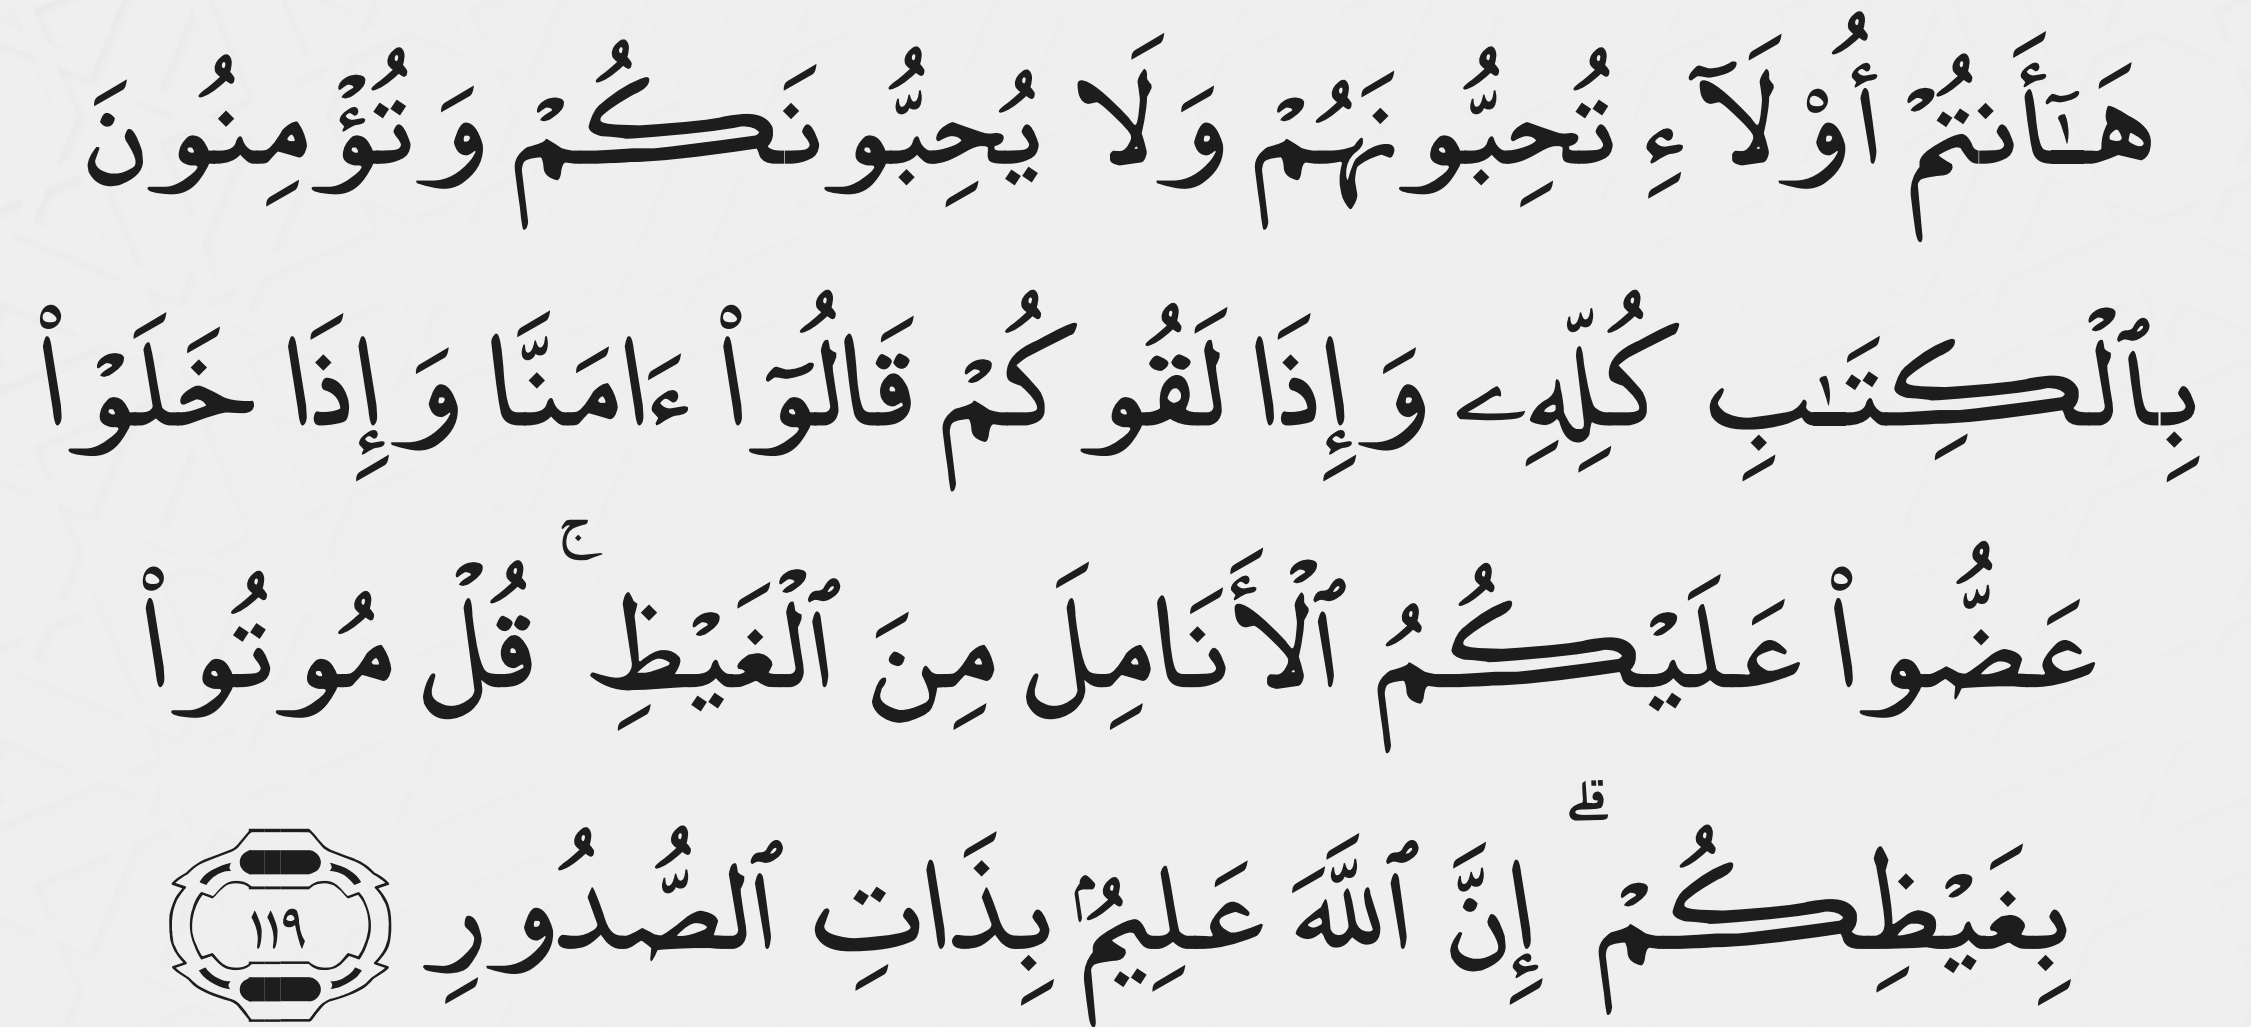 هَـٰٓأَنتُمْ أُو۟لَآءِ تُحِبُّونَهُمْ وَلَا يُحِبُّونَكُمْ وَتُؤْمِنُونَ
بِٱلْكِتَـٰبِ كُلِّهِۦ وَإِذَا لَقُوكُمْ قَالُوٓا۟ ءَامَنَّا وَإِذَا خَلَوْا۟
عَضُّوا۟ عَلَيْكُمُ ٱلْأَنَامِلَ مِنَ ٱلْغَيْظِ ۚ قُلْ مُوتُوا۟
بِغَيْظِكُمْ ۗ إِنَّ ٱللَّهَ عَلِيمٌۢ بِذَاتِ ٱلصُّدُورِ ١١٩